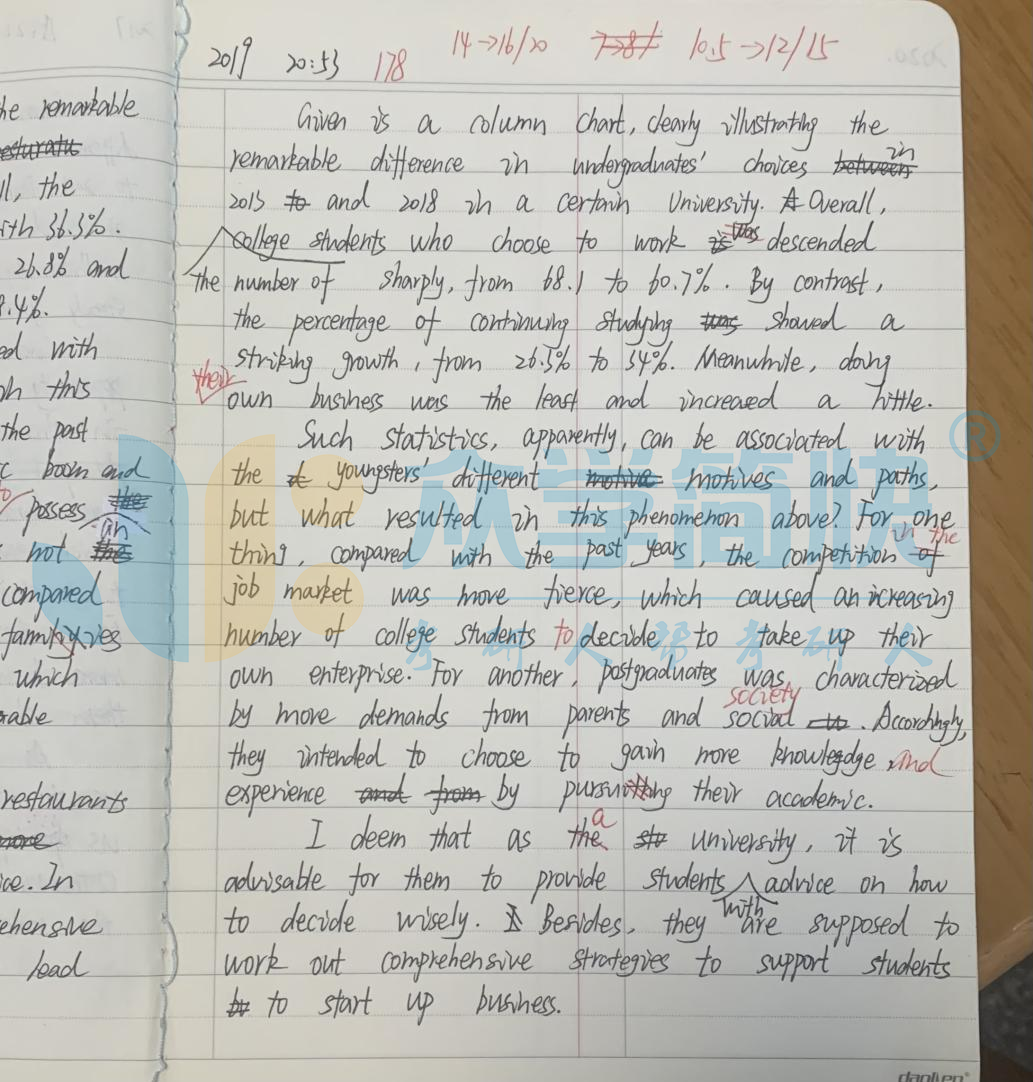 he remarkable
ll, the
ith 36.3%.
26.8% and
8.4%.
ed with
oh this
the past
c boom and
possess the
in
not the
compared
families
which
rable
restaurants
more
ice. In
ehensive
lead
2019 20:53 178 14→16/20 7→8/ 10.5→12/15
Given is a column chart, clearly illustrating the
remarkable difference in undergraduates' choices between in
2013 to and 2018 in a certain University. A Overall,
college students who choose to work is was descended
the number of sharply, from 68.1 to 60.7%. By contrast,
the percentage of continuing studying was showed a
striking growth, from 26.3% to 34%. Meanwhile, doing
their
own business was the least and increased a little.
Such statistics, apparently, can be associated with
the youngsters' different motive motives and paths,
but what resulted in this phenomenon above? For one
in the
thing, compared with the past years, the competition of
job market was more fierce, which caused an increasing
number of college students to decide to take up their
own enterprise. For another, postgraduates was characterized
society
by more demands from parents and social. Accordingly,
they intended to choose to gain more knowlegdge, and
experience and from by pursuiting their academic.
a
I deem that as the stu university, it is
advisable for them to provide students advice on how
with
to decide wisely. I Besides, they are supposed to
work out comprehensive strategies to support students
bu to start up business.
众学简快
®
考研人帮考研人